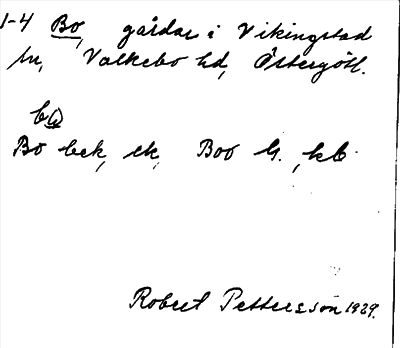 1-4 Bo, gårdar i Vikingstad
sn, Valkebo hd, Östergötl.
Bo bek, ek, Boo h., kb
Robert Pettersson 1929.